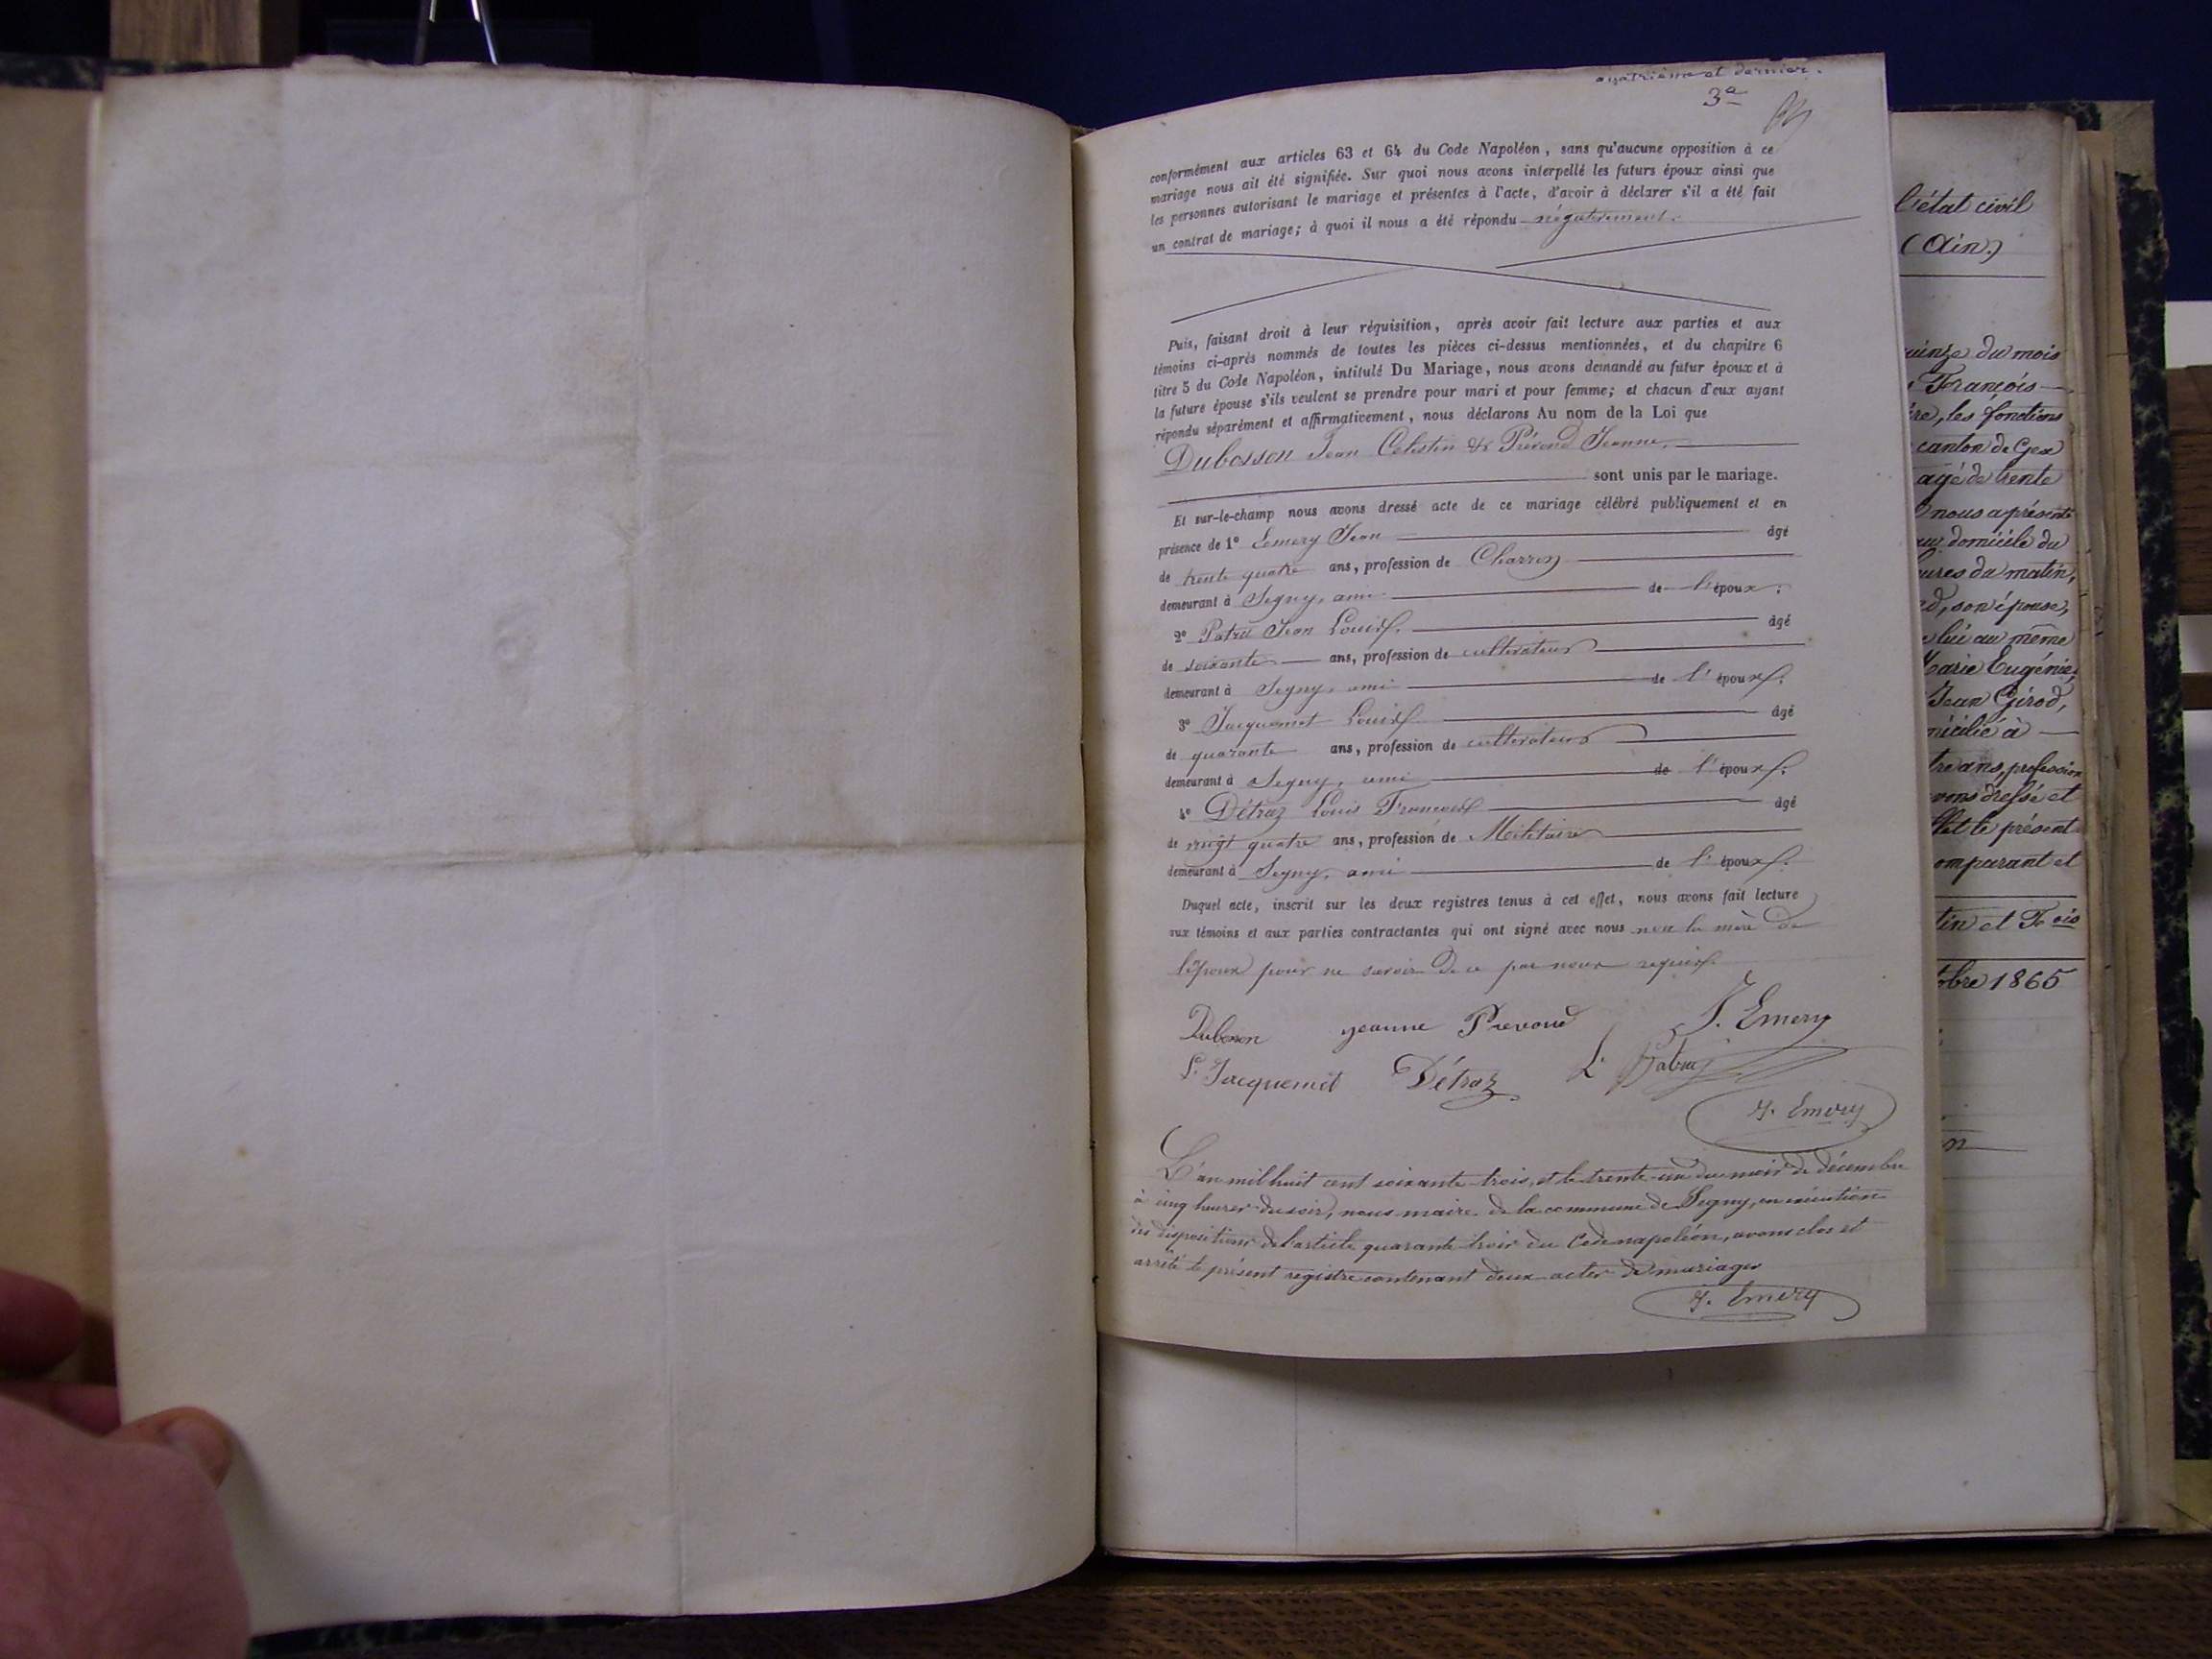 quatrième et dernier.
3e
conformément aux articles 63 et 64 du Code Napoléon, sans qu'aucune opposition à ce
mariage nous ait été signifiée. Sur quoi nous avons interpellé les futurs époux ainsi que
les personnes autorisant le mariage et présentes à l'acte, d'avoir à déclarer s'il a été fait
un contrat de mariage; à quoi il nous a été répondu négativement.
Puis, faisant droit à leur réquisition, après avoir fait lecture aux parties et aux
témoins ci-après nommés de toutes les pièces ci-dessus mentionnées, et du chapitre 6
titre 5 du Code Napoléon, intitulé Du Mariage, nous avons demandé au futur époux et à
la future épouse s'ils veulent se prendre pour mari et pour femme; et chacun d'eux ayant
répondu séparément et affirmativement, nous déclarons Au nom de la Loi que
Dubosson Jean Célestin & Prévond Jeanne.
sont unis par le mariage.
Et sur-le-champ nous avons dressé acte de ce mariage célébré publiquement et en
présence de 1° Emery Jean âgé
de trente quatre ans, profession de Charron
demeurant à Segny, ami de l'époux.
2° Patru Jean Louis. âgé
de soixante ans, profession de cultivateur
demeurant à Segny, ami de l'époux.
3° Jacquemet Louis âgé
de quarante ans, profession de cultivateur
demeurant à Segny, ami de l'époux.
4° Détraz Louis François âgé
de vingt quatre ans, profession de Militaire
demeurant à Segny, ami de l'époux.
Duquel acte, inscrit sur les deux registres tenus à cet effet, nous avons fait lecture
aux témoins et aux parties contractantes qui ont signé avec nous non la mère de
l'époux pour ne savoir de ce par nous requis.
Dubosson jeanne Prevond J. Emery
L. Jacquemet Détraz L. Patru
J. Emery
L'an mil huit cent soixante trois, et le trente-un du mois de décembre
à cinq heures du soir, nous maire de la commune de Segny, en exécution
des dispositions de l'article quarante-trois du Code napoléon, avons clos et
arrêté le présent registre contenant deux actes de mariages
J. Emery
l'état civil
(Ain.)
du mois
François
les fonctions
canton de Gex
âgé de trente
nous a présenté
domicile du
du matin,
son épouse,
lui au même
Eugénie,
Jean Girod,
à
ans, profession
dressé et
le présent
comparant et
et Fois
1865